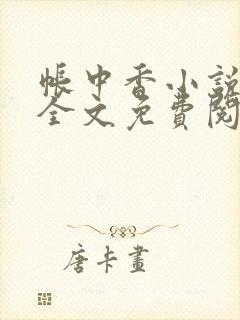 帳中香小説
全文免費閱
唐卡畫